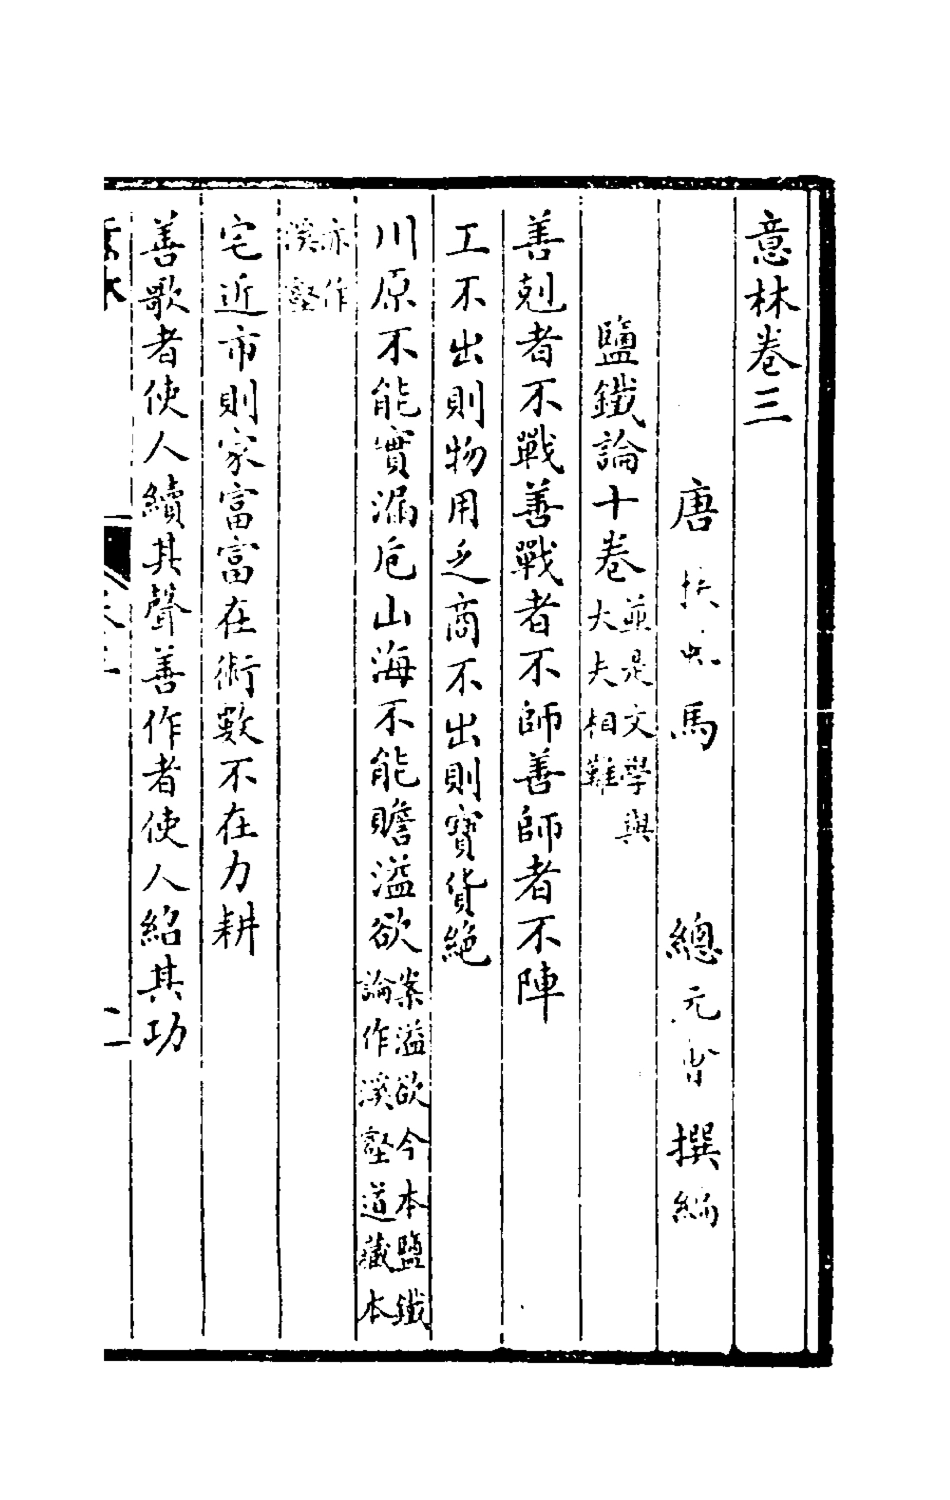 意林卷三
唐 扶風馬 總元會 撰編
鹽鐵論十卷並是文學與大夫相難
善剋者不戰善戰者不師善師者不陣
工不出則物用乏商不出則寶貨絶
川原不能實漏卮山海不能贍溢欲案溢欲今本鹽鐵論作溪壑道藏本
亦作溪壑
宅近市則家富富在術數不在力耕
善歌者使人續其聲善作者使人紹其功